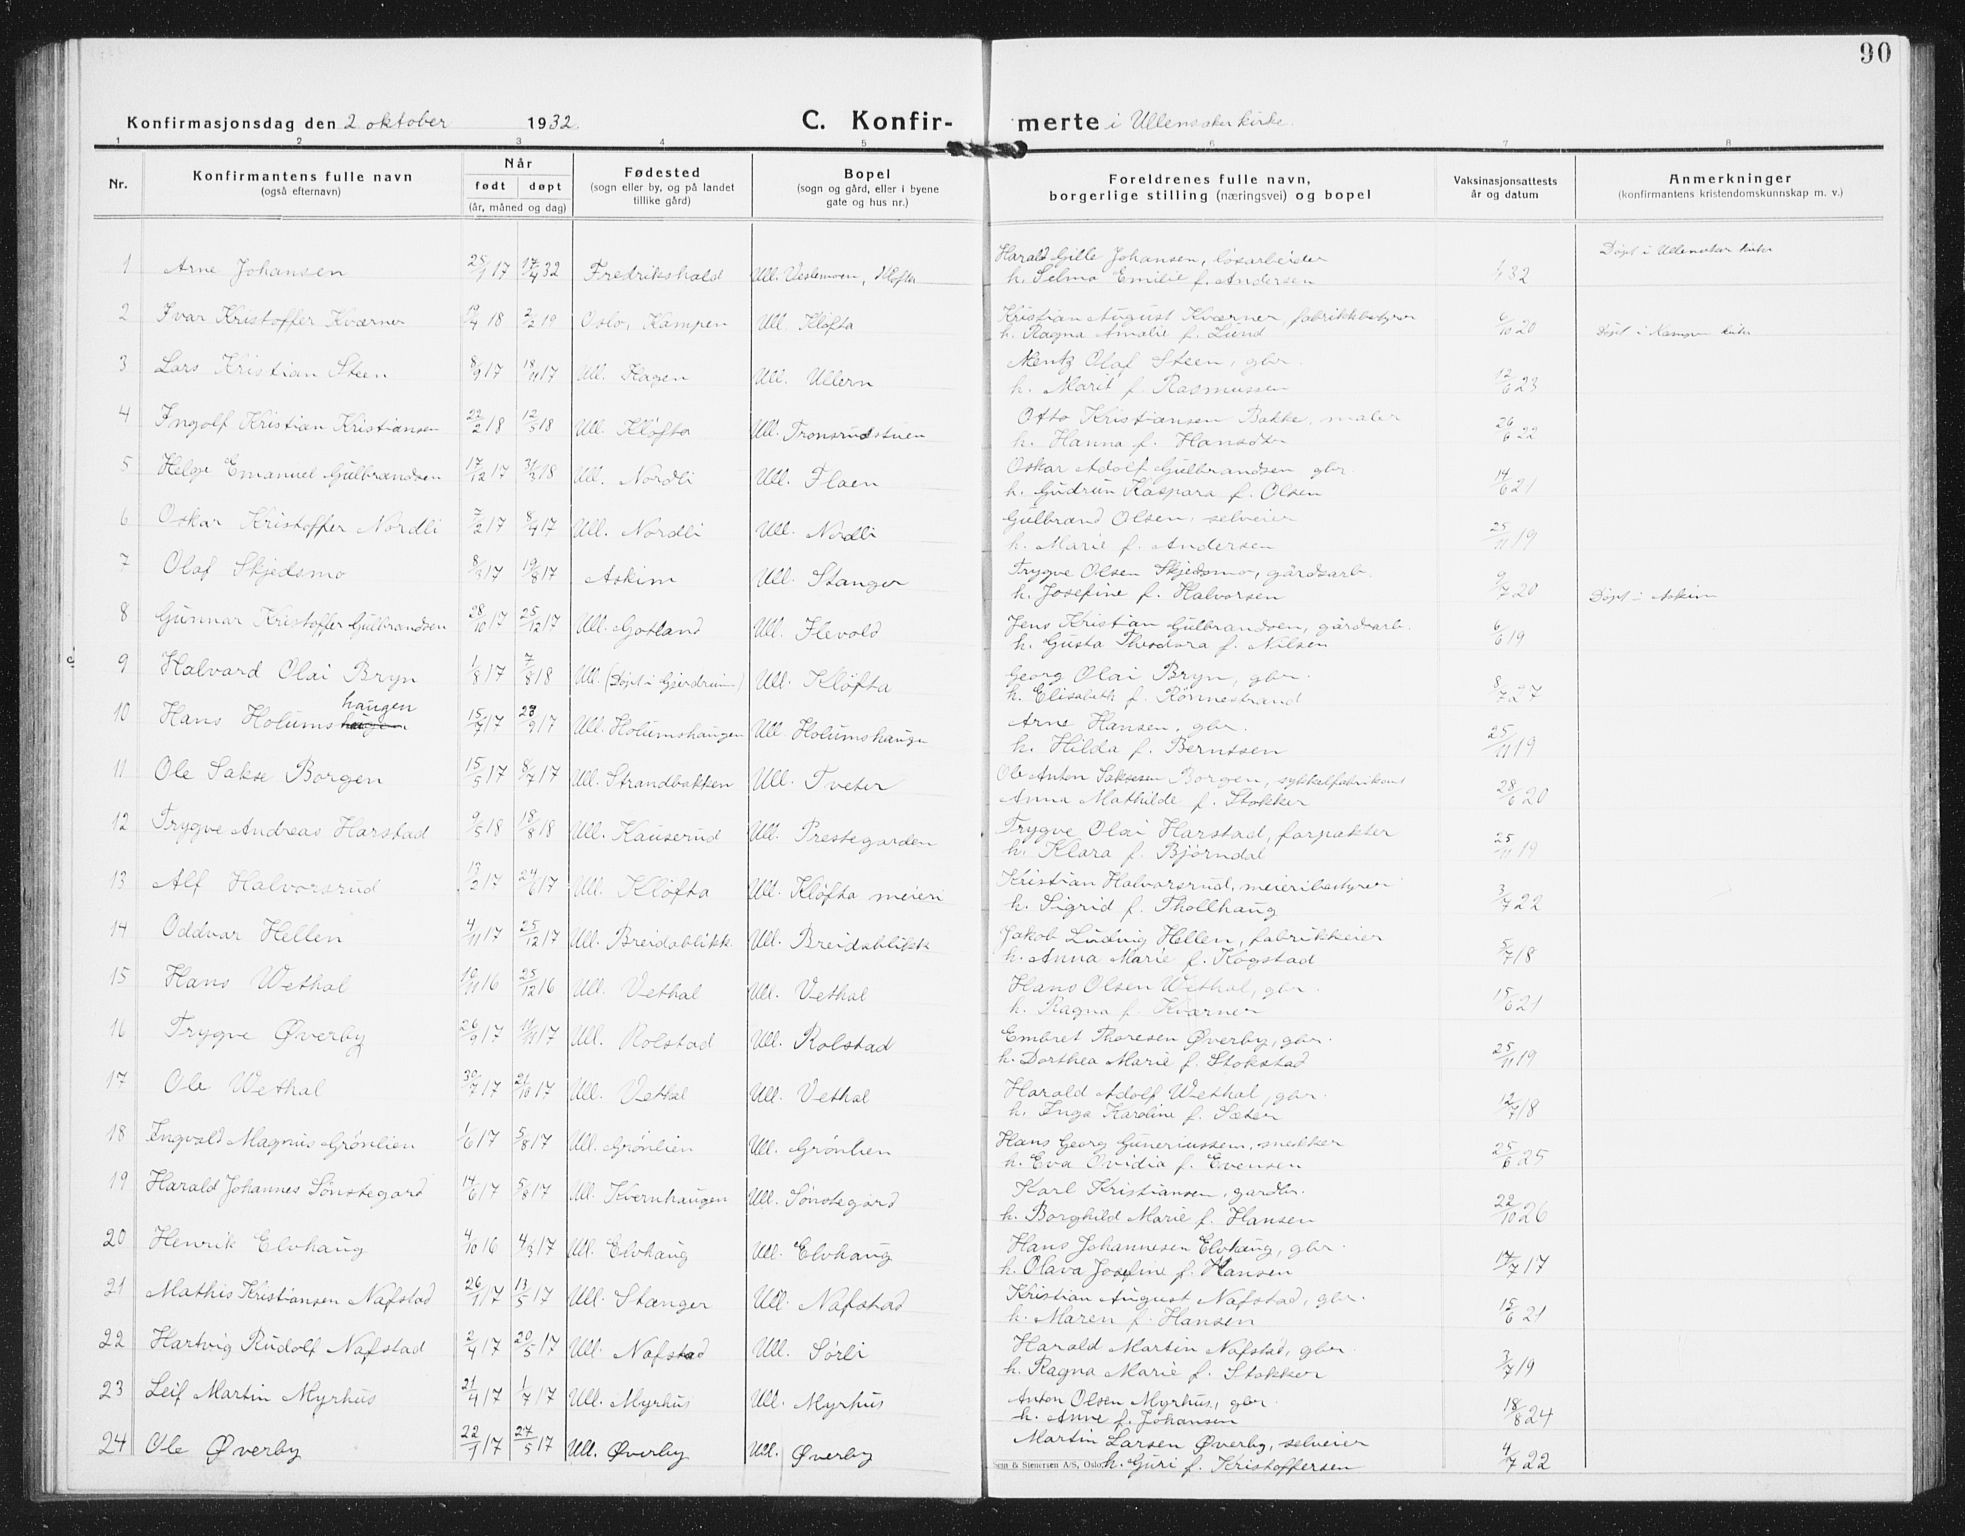 90
Konfirmasjonsdag den 2 oktober 1932 C. Konfir- merte i Ullensaker kirke.
1 2 3 4 5 6 7 8
Nr. Konfirmantens fulle navn (også efternavn) Når født døpt (år, måned og dag) Fødested (sogn eller by, og på landet tillike gård) Bopel (sogn og gård, eller i byene gate og hus nr.) Foreldrenes fulle navn, borgerlige stilling (næringsvei) og bopel Vaksinasjonsattests år og datum Anmerkninger (konfirmantens kristendomskunnskap m. v.)
1 Arne Johansen 25/1 17 17/4 32 Fredrikshald Ull. Veslemoen, Kløfta Harald Gille Johansen, løsarbeider 32 Døpt i Ullensaker kirke
h. Selma Emilie f. Andersen
2 Ivar Kristoffer Kværner 19/4 18 2/2 19 Oslo, Kampen Ull. Kløfta Kristian August Kværner, fabrikkbestyrer 6/10 20 Døpt i Kampen kirke
h. Ragna Amalie f. Lund
3 Lars Kristian Steen 8/9 17 18/11 17 Ull. Hagen Ull. Ullern Mentz Olaf Steen, gbr. 12/6 23
h. Marit f. Rasmussen
4 Ingolf Kristian Kristiansen 22/2 18 12/5 18 Ull. Kløfta Ull. Tronsrudstuen Otto Kristiansen Bakke, maler 26/6 22
h. Hanna f. Hansdtr
5 Helge Emanuel Gulbrandsen 17/12 17 31/3 18 Ull. Nordli Ull. Flaen Oskar Adolf Gulbrandsen gbr. 14/6 21
h. Gudrun Kaspara f. Olsen
6 Oskar Kristoffer Nordli 7/2 17 8/4 17 Ull. Nordli Ull. Nordli Gulbrand Olsen, selveier 25/11 19
h. Marie f. Andersen
7 Olaf Skjedsmo 8/3 17 19/8 17 Askim Ull. Stanger Trygve Olsen Skjedsmo, gårdsarb. 9/7 20 Døpt i Askim
h. Josefine f. Halvorsen
8 Gunnar Kristoffer Gulbrandsen 28/10 17 25/12 17 Ull. Gotland Ull. Hevold Jens Kristian Gulbrandsen, gårdsarb. 6/6 19
h. Gusta Theodora f. Nilsen
9 Halvard Olai Bryn 1/8 17 7/8 18 Ull. (Døpt i Gjerdrum) Ull. Kløfta Georg Olai Bryn, gbr. 8/7 27
h. Elisabeth f. Rønnestrand
10 Hans Holumshaugen 15/7 17 23/9 17 Ull. Holumshaugen Ull. Holumshaugn Arne Hansen, gbr. 25/11 19
h. Hilda f. Berntsen
11 Ole Sakse Borgen 15/5 17 8/7 17 Ull. Strandbakken Ull. Tveter Ole Anton Saksesen Borgen, sykkelfabrikant 28/6 20
Anna Mathilde f. Stokker
12 Trygve Andreas Harstad 9/5 18 18/8 18 Ull. Kauserud Ull. Prestegarden Trygve Olai Harstad, forpakter 25/11 19
h. Klara f. Bjørndal
13 Alf Halvorsrud 13/2 17 24/6 17 Ull. Kløfta Ull. Kløfta meieri Kristian Halvorsrud, meieribestyrer 3/7 22
h. Sigrid f. Thollhaug
14 Oddvar Hellen 4/11 17 25/12 17 Ull. Breidablikk Ull. Breidablikk Jakob Ludvig Hellen, fabrikkeier 5/7 18
h. Anna Marie f. Kogstad
15 Hans Wethal 19/11 16 25/12 16 Ull. Vethal Ull. Vethal Hans Olsen Wethal, gbr. 15/6 21
h. Ragna f. Kværner
16 Trygve Øverby 26/9 17 11/11 17 Ull. Rolstad Ull. Rolstad Embret Thoresen Øverby, gbr. 25/11 19
h. Dorthea Marie f. Stokstad
17 Ole Wethal 30/7 17 21/10 17 Ull. Vethal Ull. Vethal Harald Adolf Wethal, gbr. 12/7 18
h. Inga Karoline f. Sæter
18 Ingvald Magnus Grønlien 1/6 17 5/8 17 Ull. Grønlien Ull. Grønlien Hans Georg Guneriussen, snekker 25/6 25
h. Eva Ovidia f. Evensen
19 Harald Johannes Sønstegard 14/6 17 5/8 17 Ull. Kvernhaugen Ull. Sønstegard Karl Kristiansen, gardbr. 22/10 26
h. Borghild Marie f. Hansen
20 Henrik Elvhaug 4/10 16 4/3 17 Ull. Elvhaug Ull. Elvhaug Hans Johannesen Elvhaug, gbr. 17/7 17
h. Olava Josefine f. Hansen
21 Mathis Kristiansen Nafstad 26/1 17 13/5 17 Ull. Stanger Ull. Nafstad Kristian August Nafstad, gbr. 15/6 21
h. Maren f. Hansen
22 Hartvig Rudolf Nafstad 2/4 17 20/5 17 Ull. Nafstad Ull. Sørli Harald Martin Nafstad, gbr. 3/7 19
h. Ragna Marie f. Stokker
23 Leif Martin Myrhus 21/4 17 1/7 17 Ull. Myrhus Ull. Myrhus Anton Olsen Myrhus, gbr. 18/8 24
h. Anne f. Johansen
24 Ole Øverby 22/1 17 27/5 17 Ull. Øverby Ull. Øverby Martin Larsen Øverby, selveier 4/7 22
Sem & Stenersen A/S, Oslo h. Guri f. Kristoffersen